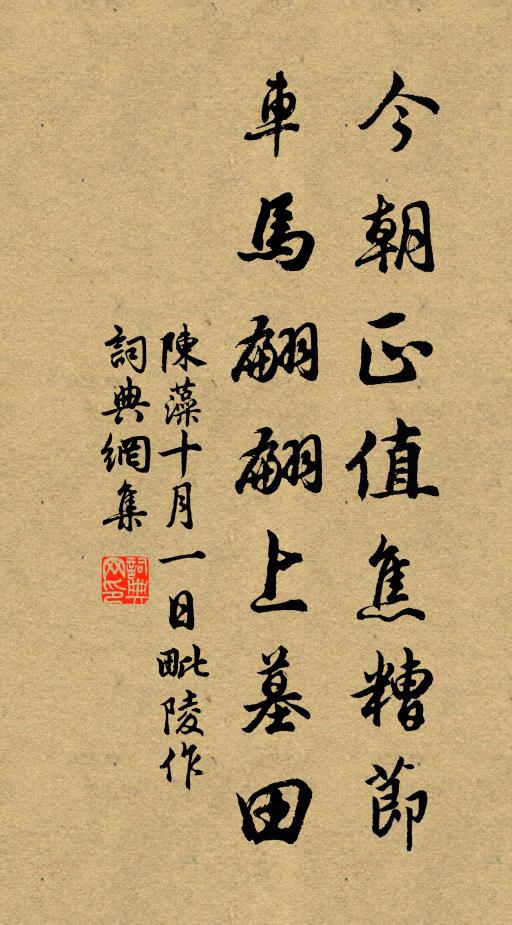 今朝正值焦糟節
車馬翩翩上墓田
陳藻十月一日毗陵作
詞典網集
詞典网印